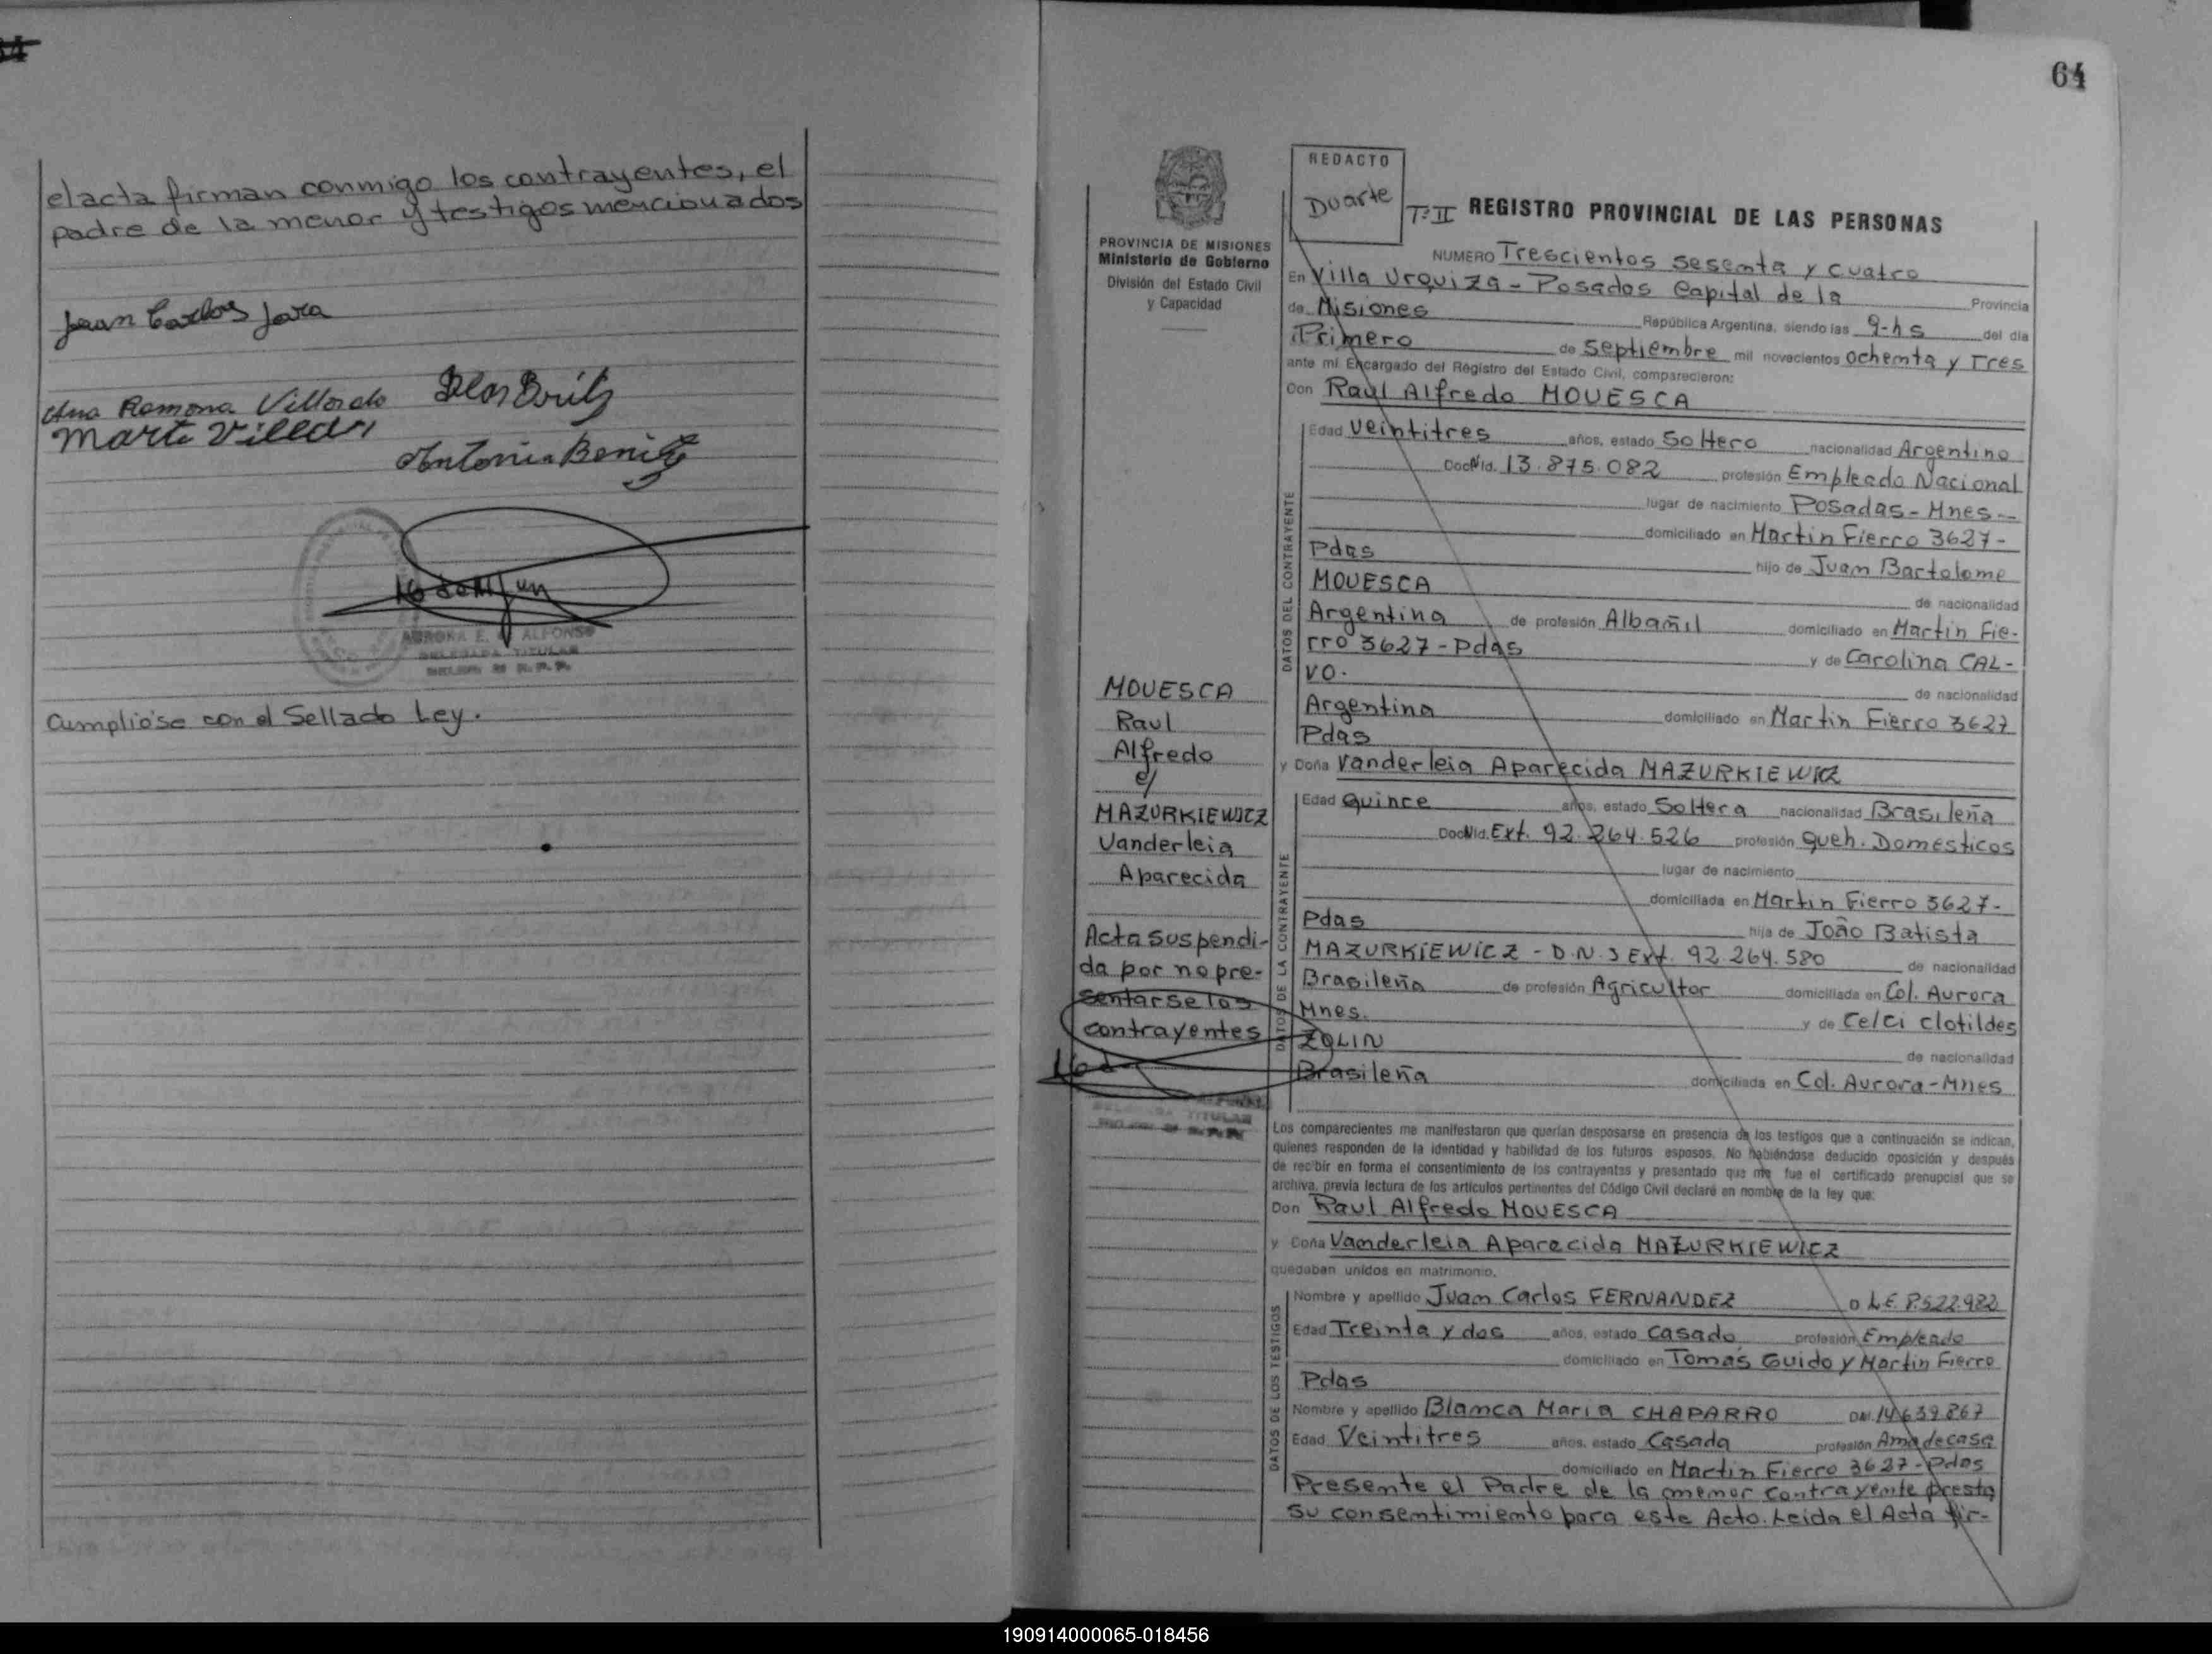 el acta firman conmigo los contrayentes, el
padre de la menor y testigos mencionados
Juan Carlos Jara
Ana Ramona Villordo
Antonia Beniz
AURORA E. G. ALFONSO
DELEGADA TITULAR
Cumplióse con el Sellado Ley.
64
PROVINCIA DE MISIONES
Ministerio de Gobierno
División del Estado Civil
y Capacidad
REDACTO
Duarte
Tº II REGISTRO PROVINCIAL DE LAS PERSONAS
NUMERO Trescientos sesenta y cuatro
En Villa Urquiza - Posadas Capital de la Provincia
de Misiones República Argentina, siendo las 9-hs del día
Primero de Septiembre mil novecientos ochenta y Tres
ante mi Encargado del Registro del Estado Civil, comparecieron:
Don Raul Alfredo MOUESCA
DATOS DEL CONTRAYENTE
Edad Veintitres años, estado Soltero nacionalidad Argentino
Doc Nid. 13.875.082 profesión Empleado Nacional
lugar de nacimiento Posadas - Mnes -
domiciliado en Martin Fierro 3627-
Pdas hijo de Juan Bartolome
MOUESCA de nacionalidad
Argentina de profesión Albañil domiciliado en Martin Fie-
rro 3627 - Pdas y de Carolina CAL-
VO. de nacionalidad
Argentina domiciliado en Martin Fierro 3627
Pdas
y Doña Vanderleia Aparecida MAZURKIEWICZ
DATOS DE LA CONTRAYENTE
Edad Quince años, estado Soltera nacionalidad Brasileña
Doc Nid. Ext. 92.264.526 profesión Queh. Domesticos
lugar de nacimiento
domiciliada en Martin Fierro 3627-
Pdas hija de João Batista
MAZURKIEWICZ - D.N.J Ext. 92.264.580 de nacionalidad
Brasileña de profesión Agricultor domiciliada en Col. Aurora
Mnes. y de Celci Clotildes
ZOLIN de nacionalidad
Brasileña domiciliada en Col. Aurora - Mnes
MOUESCA
Raul
Alfredo
c/
MAZURKIEWICZ
Vanderleia
Aparecida
Acta suspendi-
da por no pre-
sentarse los
contrayentes
DELEGADA TITULAR
Los comparecientes me manifestaron que querían desposarse en presencia de los testigos que a continuación se indican,
quienes responden de la identidad y habilidad de los futuros esposos. No habiéndose deducido oposición y después
de recibir en forma el consentimiento de los contrayentes y presentado que me fue el certificado prenupcial que se
archiva, previa lectura de los artículos pertinentes del Código Civil declaré en nombre de la ley que:
Don Raul Alfredo MOUESCA
y Doña Vanderleia Aparecida MAZURKIEWICZ
quedaban unidos en matrimonio.
DATOS DE LOS TESTIGOS
Nombre y apellido Juan Carlos FERNANDEZ D L.E. 8.522.982
Edad Treinta y dos años, estado casado profesión Empleado
domiciliado en Tomás Guido y Martin Fierro
Pdas
Nombre y apellido Blanca Maria CHAPARRO DNI. 14.639.867
Edad Veintitres años, estado Casada profesión Ama de casa
domiciliado en Martin Fierro 3627 - Pdas
Presente el Padre de la menor contrayente presta
su consentimiento para este Acto. Leida el Acta fir-
190914000065-018456